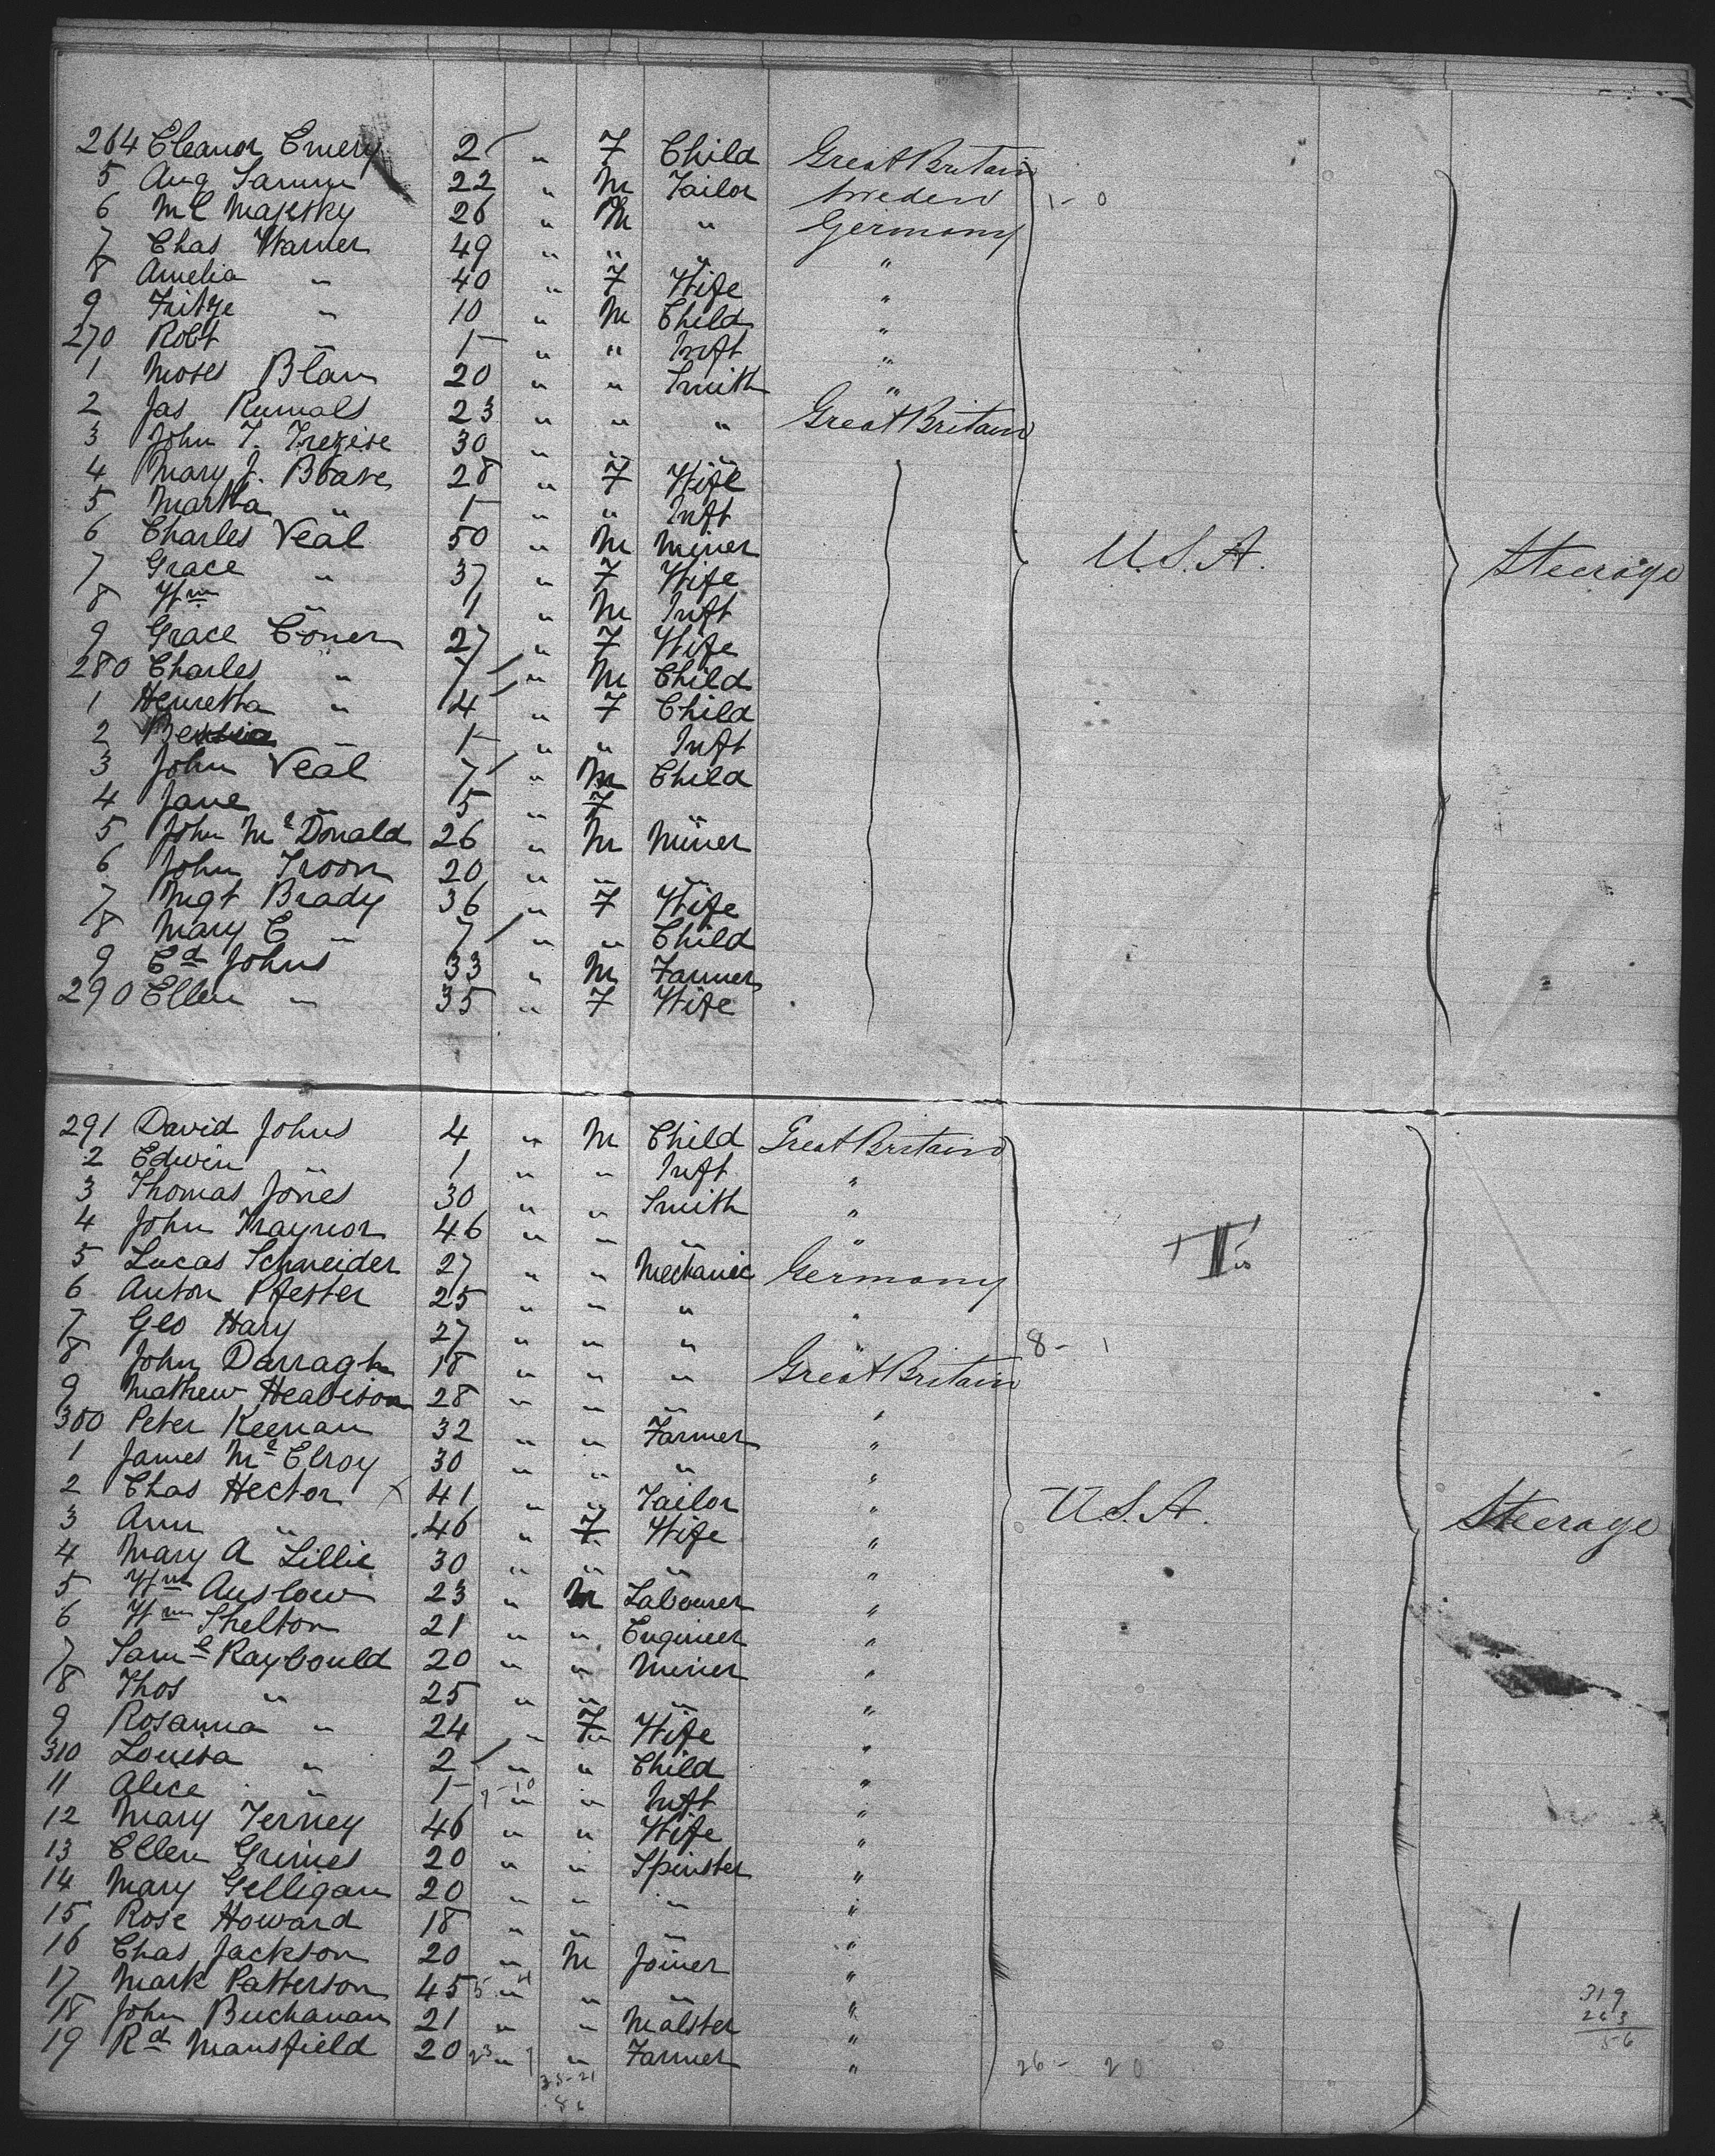 264 Eleanor Emery 2 " F Child Great Britain
5 Aug 22 " M Tailor Sweden 1 - 0
6 Mc Majesky 26 " M " Germany
7 Chas Warner 49 " " " "
8 Amelia " 40 " F Wife "
9 Fritze " 10 " M Child "
270 Robt " 1 " " Inft "
1 Moses Blau 20 " " Smith "
2 Jas 23 " " " Great Britain
3 John T. Trezise 30 " " "
4 Mary J. 28 " F Wife
5 Martha " 1 " " Inft
6 Charles Veal 50 " M Miner U.S.A. Steerage
7 Grace " 37 " F Wife
8 Wm " 1 " M Inft
9 Grace 27 " F Wife
280 Charles " 7 " M Child
1 Henretta " 4 " F Child
2 " 1 " " Inft
3 John Veal 7 " M Child
4 Jane " 5 " F "
5 John Mc Donald 26 " M Miner
6 John Troon 20 " " "
7 Mgt Brady 36 " F Wife
8 Mary E " 7 " " Child
9 Ed Johns 33 " M Farmer
290 Ellen " 35 " F Wife
291 David Johns 4 " M Child Great Britain
2 Edwin " 1 " " Inft "
3 Thomas Jones 30 " " Smith "
4 John Traynor 46 " " " "
5 Lucas Schneider 27 " " Mechanic Germany
6 Anton Pfester 25 " " " "
7 Geo Hary 27 " " " " 8 - 1
8 John Darragh 18 " " " Great Britain
9 Mathew 28 " " " "
300 Peter Keenan 32 " " Farmer "
1 James Mc Elroy 30 " " " "
2 Chas Hector X 41 " " Tailor " U.S.A. Steerage
3 Ann " 46 " F Wife "
4 Mary A Lillie 30 " " " "
5 Wm Auslow 23 " M Labourer "
6 Wm Shelton 21 " " Engineer "
7 Saml Raybould 20 " " Miner "
8 Thos " 25 " " " "
9 Rosanna " 24 " F Wife "
310 Louisa " 2 " " Child "
11 Alice " 1 " " Inft "
12 Mary Terney 46 " " Wife "
13 Ellen Grimes 20 " " Spinster "
14 Mary Gelligan 20 " " " "
15 Rose Howard 18 " " " "
16 Chas Jackson 20 " M Joiner "
17 Mark Patterson 45 " " " "
18 John Buchanan 21 " " Malster "
19 Rd Mansfield 20 " " Farmer " 26 - 20
33-21
319
263
56